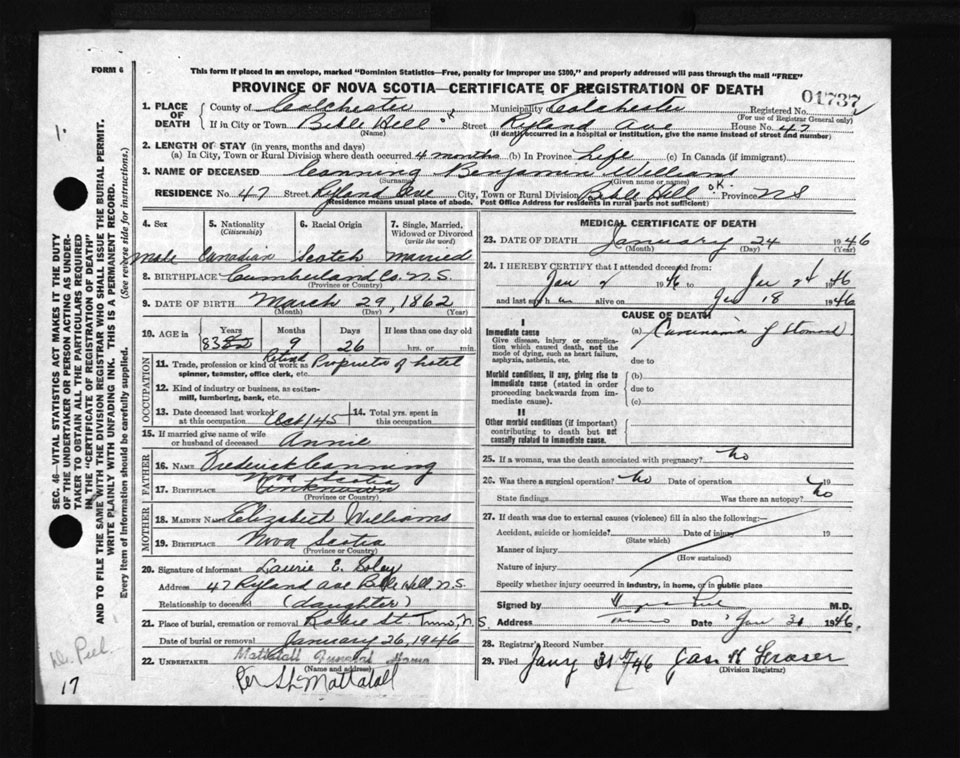 1.
FORM 6
This form if placed in an envelope, marked "Dominion Statistics—Free, penalty for improper use $300," and properly addressed will pass through the mail "FREE"
PROVINCE OF NOVA SCOTIA—CERTIFICATE OF REGISTRATION OF DEATH
01737
1. PLACE OF DEATH County of Colchester Municipality of Colchester Registered No.
(For use of Registrar General only)
If in City or Town Bible Hill OK Street Ryland Ave House No. 47
(Name) (If death occurred in a hospital or institution, give the name instead of street and number)
2. LENGTH OF STAY (in years, months and days)
(a) In City, Town or Rural Division where death occurred 4 months (b) In Province Life (c) In Canada (if immigrant)
3. NAME OF DECEASED Canning Benjamin Williams
(Surname) (Given name or names)
RESIDENCE No. 47 Street Ryland Ave City, Town or Rural Division Bible Hill OK Province NS
(Residence means usual place of abode. Post Office Address for residents in rural parts not sufficient)
4. Sex 5. Nationality (Citizenship) 6. Racial Origin 7. Single, Married, Widowed or Divorced (write the word)
Male Canadian Scotch Married
8. BIRTHPLACE Cumberland Co. N.S.
(Province or County)
9. DATE OF BIRTH March 29, 1862
(Month) (Day) (Year)
10. AGE in Years Months Days If less than one day old
83 9 26 hrs. or min.
OCCUPATION
11. Trade, profession or kind of work as spinner, teamster, office clerk, etc. Retired Proprietor of hotel
12. Kind of industry or business, as cotton-mill, lumbering, bank, etc.
13. Date deceased last worked at this occupation Oct/45 14. Total yrs. spent in this occupation
15. If married give name of wife or husband of deceased Annie
FATHER
16. NAME Frederick Canning
Nova Scotia
17. BIRTHPLACE Unknown
(Province or Country)
MOTHER
18. MAIDEN NAME Elizabeth Williams
19. BIRTHPLACE Nova Scotia
(Province or Country)
20. Signature of informant Laurie E.
Address 47 Ryland Ave Bible Hill, N.S.
Relationship to deceased (daughter)
21. Place of burial, cremation or removal Robie St. Truro, N.S.
Date of burial or removal January 26, 1946
22. UNDERTAKER Mattatall Funeral Home
(Name and address)
Per Mattatall
MEDICAL CERTIFICATE OF DEATH
23. DATE OF DEATH January 24 1946
(Month) (Day) (Year)
24. I HEREBY CERTIFY that I attended deceased from:
Jan 2 1946 to Jan 24 1946
and last saw h im alive on Jan 18 1946
CAUSE OF DEATH
I
Immediate cause (a) Carcinoma of Stomach
Give disease, injury or complication which caused death, not the mode of dying, such as heart failure, asphyxia, asthenia, etc.
due to
Morbid conditions, if any, giving rise to immediate cause (stated in order proceeding backwards from immediate cause).
(b)
due to
(c)
II
Other morbid conditions (if important) contributing to death but not causally related to immediate cause.
25. If a woman, was the death associated with pregnancy? No
26. Was there a surgical operation? No Date of operation 19
State findings Was there an autopsy? No
27. If death was due to external causes (violence) fill in also the following:—
Accident, suicide or homicide? Date of injury 19
(State which)
Manner of injury
(How sustained)
Nature of injury
Specify whether injury occurred in industry, in home, or in public place
Signed by M.D.
Address Truro Date Jan 31 1946.
28. Registrar's Record Number
29. Filed Jany 31 46 Jas H Fraser
(Division Registrar)
SEC. 46—VITAL STATISTICS ACT MAKES IT THE DUTY
OF THE UNDERTAKER OR PERSON ACTING AS UNDER-
TAKER TO OBTAIN ALL THE PARTICULARS REQUIRED
IN THE "CERTIFICATE OF REGISTRATION OF DEATH"
AND TO FILE THE SAME WITH THE DIVISION REGISTRAR WHO SHALL ISSUE THE BURIAL PERMIT.
WRITE PLAINLY WITH UNFADING INK. THIS IS A PERMANENT RECORD.
Every item of information should be carefully supplied. (See reverse side for instructions.)
Dr. Peel.
17